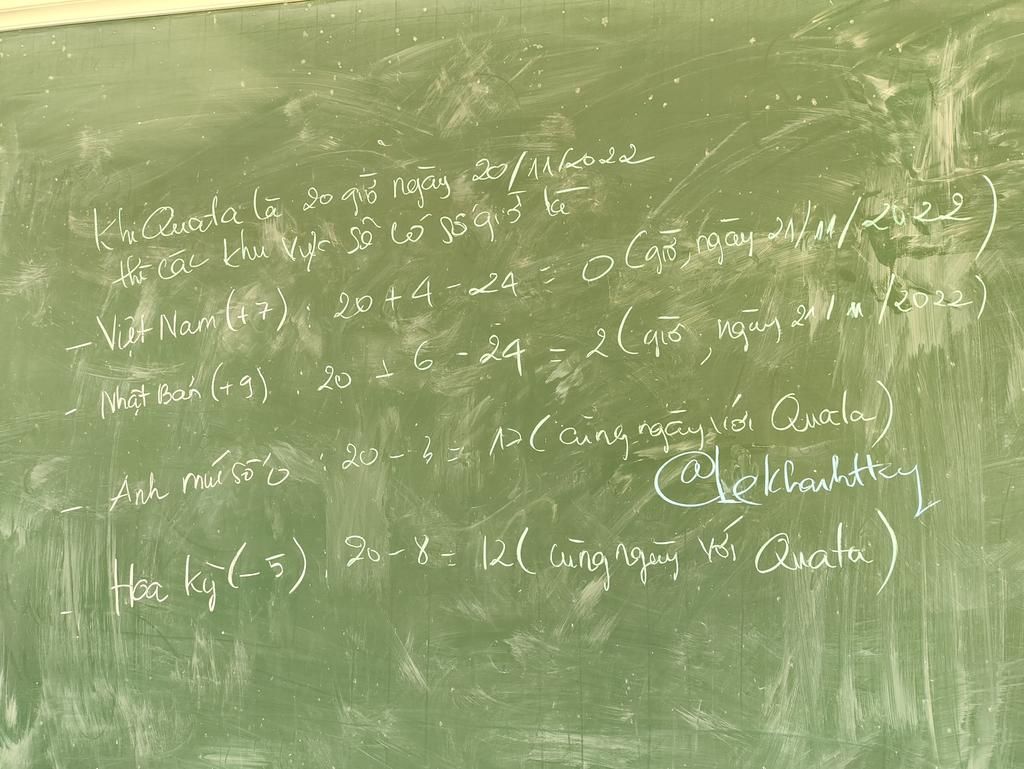 Khi Quata là 20 giờ ngày 20/11/2022
thì các khu vực sẽ có số giờ là
- Việt Nam (+7) : 20 + 4 - 24 = 0 (giờ, ngày 21/11/2022)
- Nhật Bản (+9) : 20 + 6 - 24 = 2 (giờ, ngày 21/11/2022)
- Anh múi số 0 : 20 - 3 = 17 (cùng ngày với Quata)
@lekhanhttcy
- Hoa kỳ (-5) : 20 - 8 = 12 (cùng ngày với Quata)